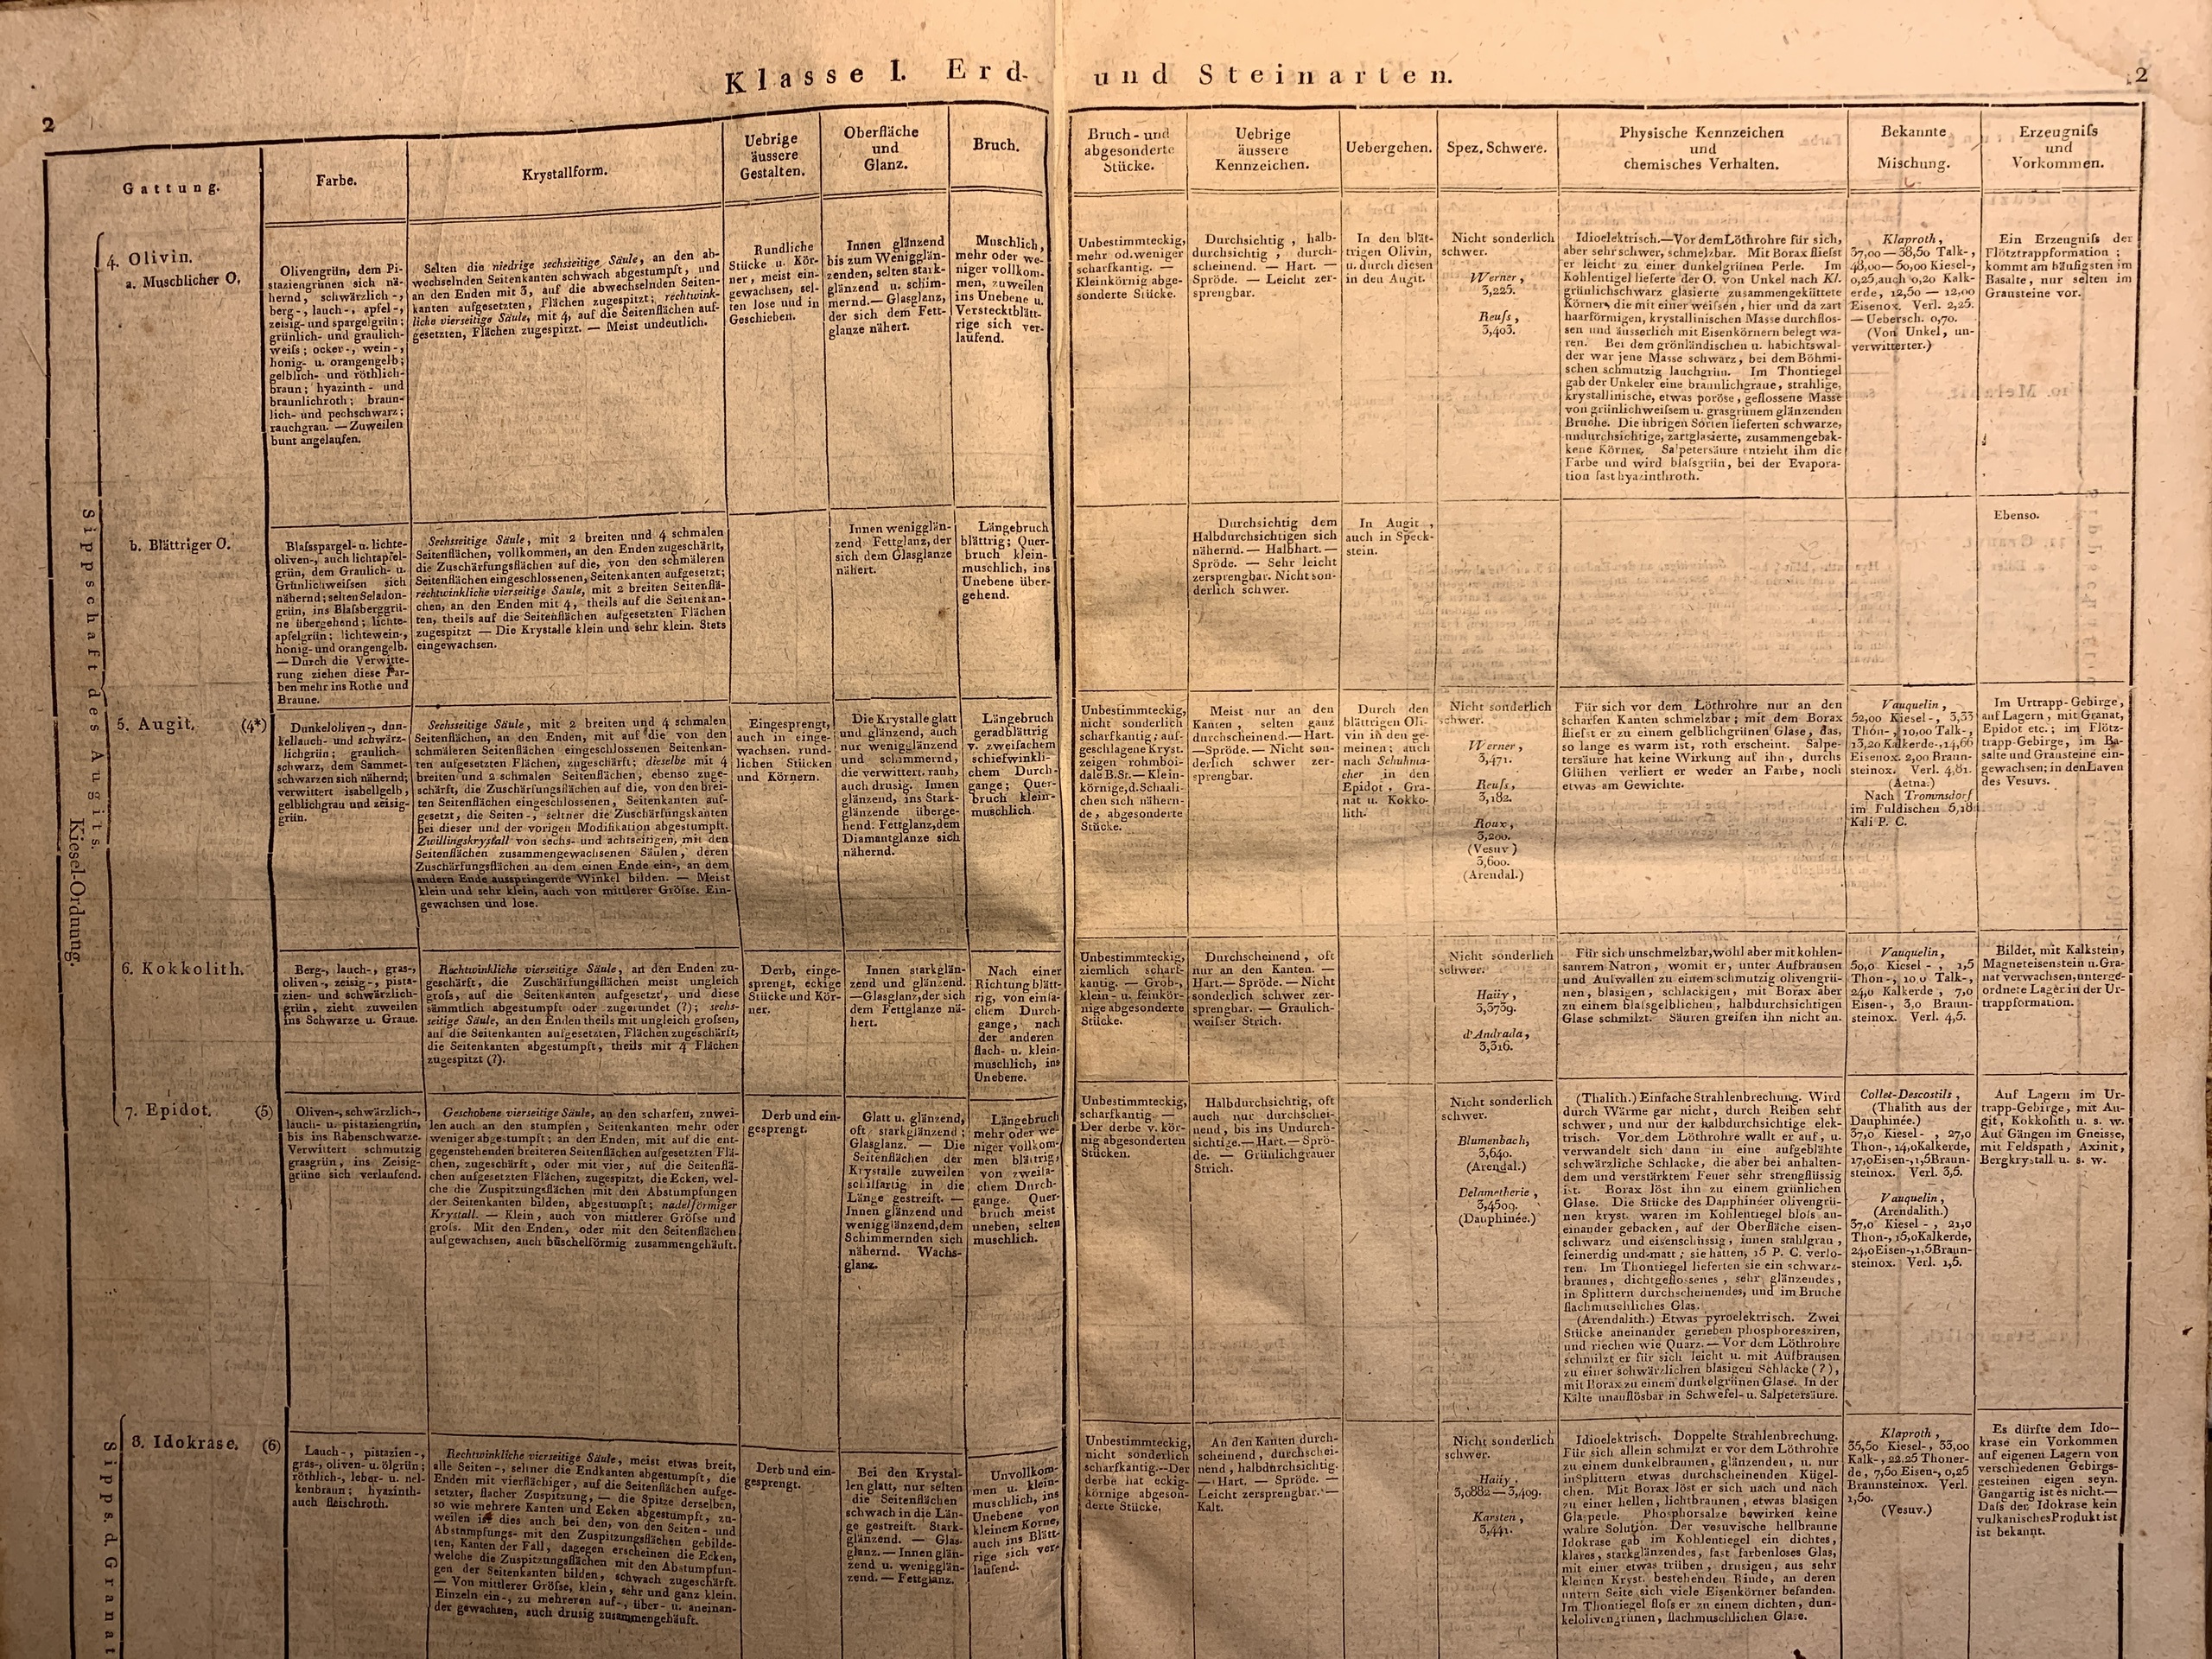 Klasse I. Erd- und Steinarten.
2
2
Gattung.
Farbe.
Krystallform.
Uebrige
äussere
Gestalten.
Oberfläche
und
Glanz.
Bruch.
Bruch- und
abgesonderte
Stücke.
Uebrige
äussere
Kennzeichen.
Uebergehen.
Spez. Schwere.
Physische Kennzeichen
und
chemisches Verhalten.
Bekannte
Mischung.
Erzeugniſs
und
Vorkommen.
Kiesel-Ordnung.
Sippschaft des Augits.
4. Olivin.
a. Muschlicher O.
Olivengrün, dem Pi-
staziengrünen sich nä-
hernd, schwärzlich-,
berg-, lauch-, apfel-,
zeisig- und spargelgrün;
grünlich- und graulich-
weiſs; ocker-, wein-,
honig- u. orangengelb;
gelblich- und röthlich-
braun; hyazinth- und
braunlichroth; braun-
lich- und pechschwarz;
rauchgrau. — Zuweilen
bunt angelaufen.
Selten die niedrige sechsseitige Säule, an den ab-
wechselnden Seitenkanten schwach abgestumpft, und
an den Enden mit 3, auf die abwechselnden Seiten-
kanten aufgesetzten, Flächen zugespitzt; rechtwink-
liche vierseitige Säule, mit 4, auf die Seitenflächen auf-
gesetzten, Flächen zugespitzt. — Meist undeutlich.
Rundliche
Stücke u. Kör-
ner, meist ein-
gewachsen, sel-
ten lose und in
Geschieben.
Innen glänzend
bis zum Wenigglän-
zenden, selten stark-
glänzend u. schim-
mernd.— Glasglanz,
der sich dem Fett-
glanze nähert.
Muschlich,
mehr oder we-
niger vollkom-
men, zuweilen
ins Unebene u.
Verstecktblätt-
rige sich ver-
laufend.
Unbestimmteckig,
mehr od. weniger
scharfkantig. —
Kleinkörnig abge-
sonderte Stücke.
Durchsichtig, halb-
durchsichtig, durch-
scheinend. — Hart. —
Spröde. — Leicht zer-
sprengbar.
In den blät-
trigen Olivin,
u. durch diesen
in den Augit.
Nicht sonderlich
schwer.
Werner,
3,225.
Reuſs,
3,403.
Idioelektrisch.—Vor dem Löthrohre für sich,
aber sehr schwer, schmelzbar. Mit Borax flieſst
er leicht zu einer dunkelgrünen Perle. Im
Kohlentigel lieferte der O. von Unkel nach Kl.
grünlichschwarz glasierte zusammengeküttete
Körner, die mit einer weiſsen, hier und da zart
haarförmigen, krystallinischen Masse durchflos-
sen und äusserlich mit Eisenkörnern belegt wa-
ren. Bei dem grönländischen u. habichtswal-
der war jene Masse schwarz, bei dem Böhmi-
schen schmutzig lauchgrün. Im Thontiegel
gab der Unkeler eine braunlichgraue, strahlige,
krystallinische, etwas poröse, geflossene Masse
von grünlichweiſsem u. grasgrünem glänzenden
Bruche. Die übrigen Sorten lieferten schwarze,
undurchsichtige, zartglasierte, zusammengebak-
kene Körner. Salpetersäure entzieht ihm die
Farbe und wird blaſsgrün, bei der Evapora-
tion fast hyazinthroth.
Klaproth,
37,00 — 38,50 Talk-,
48,00 — 50,00 Kiesel-,
0,25, auch 0,20 Kalk-
erde, 12,50 — 12,00
Eisenox. Verl. 2,25.
— Uebersch. 0,70.
(Von Unkel, un-
verwitterter.)
Ein Erzeugniſs der
Flötztrappformation;
kommt am häufigsten im
Basalte, nur selten im
Grausteine vor.
b. Blättriger O.
Blaſsspargel- u. lichte-
oliven-, auch lichtapfel-
grün, dem Graulich- u.
Grünlichweiſsen sich
nähernd; selten Seladon-
grün, ins Blaſsberggrü-
ne übergehend; lichte-
apfelgrün; lichtewein-,
honig- und orangengelb.
— Durch die Verwitte-
rung ziehen diese Far-
ben mehr ins Rothe und
Braune.
Sechsseitige Säule, mit 2 breiten und 4 schmalen
Seitenflächen, vollkommen, an den Enden zugeschärft,
die Zuschärfungsflächen auf die, von den schmäleren
Seitenflächen eingeschlossenen, Seitenkanten aufgesetzt;
rechtwinkliche vierseitige Säule, mit 2 breiten Seitenflä-
chen, an den Enden mit 4, theils auf die Seitenkan-
ten, theils auf die Seitenflächen aufgesetzten Flächen
zugespitzt — Die Krystalle klein und sehr klein. Stets
eingewachsen.
Innen wenigglän-
zend Fettglanz, der
sich dem Glasglanze
nähert.
Längebruch
blättrig; Quer-
bruch klein-
muschlich, ins
Unebene über-
gehend.
Durchsichtig dem
Halbdurchsichtigen sich
nähernd. — Halbhart. —
Spröde. — Sehr leicht
zersprengbar. Nicht son-
derlich schwer.
In Augit,
auch in Speck-
stein.
Ebenso.
5. Augit. (4*)
Dunkeloliven-, dun-
kellauch- und schwärz-
lichgrün; graulich-
schwarz, dem Sammet-
schwarzen sich nähernd;
verwittert isabellgelb,
gelblichgrau und zeisig-
grün.
Sechsseitige Säule, mit 2 breiten und 4 schmalen
Seitenflächen, an den Enden, mit auf die von den
schmäleren Seitenflächen eingeschlossenen Seitenkan-
ten aufgesetzten Flächen, zugeschärft; dieselbe mit 4
breiten und 2 schmalen Seitenflächen, ebenso zuge-
schärft, die Zuschärfungsflächen auf die, von den brei-
ten Seitenflächen eingeschlossenen, Seitenkanten auf-
gesetzt, die Seiten-, seltner die Zuschärfungskanten
bei dieser und der vorigen Modifikation abgestumpft.
Zwillingskrystall von sechs- und achtseitigen, mit den
Seitenflächen zusammengewachsenen Säulen, deren
Zuschärfungsflächen an dem einen Ende ein-, an dem
andern Ende ausspringende Winkel bilden. — Meist
klein und sehr klein, auch von mittlerer Gröſse. Ein-
gewachsen und lose.
Eingesprengt,
auch in einge-
wachsen. rund-
lichen Stücken
und Körnern.
Die Krystalle glatt
und glänzend, auch
nur wenigglänzend
und schimmernd,
die verwittert. rauh,
auch drusig. Innen
glänzend, ins Stark-
glänzende überge-
hend. Fettglanz, dem
Diamantglanze sich
nähernd.
Längebruch
geradblättrig
v. zweifachem
schiefwinkli-
chem Durch-
gange; Quer-
bruch klein-
muschlich.
Unbestimmteckig,
nicht sonderlich
scharfkantig; auf-
geschlagene Kryst.
zeigen rohmboi-
dale B.St.— Klein-
körnige, d. Schaali-
chen sich nähern-
de, abgesonderte
Stücke.
Meist nur an den
Kanten, selten ganz
durchscheinend.— Hart.
—Spröde. — Nicht son-
derlich schwer zer-
sprengbar.
Durch den
blättrigen Oli-
vin in den ge-
meinen; auch
nach Schuhma-
cher in den
Epidot, Gra-
nat u. Kokko-
lith.
Nicht sonderlich
schwer.
Werner,
3,471.
Reuſs,
3,182.
Roux,
3,200.
(Vesuv)
3,600.
(Arendal.)
Für sich vor dem Löthrohre nur an den
scharfen Kanten schmelzbar; mit dem Borax
flieſst er zu einem gelblichgrünen Glase, das,
so lange es warm ist, roth erscheint. Salpe-
tersäure hat keine Wirkung auf ihn, durchs
Glühen verliert er weder an Farbe, noch
etwas am Gewichte.
Vauquelin,
52,00 Kiesel-, 3,33
Thon-, 10,00 Talk-,
13,20 Kalkerde-, 14,66
Eisenox. 2,00 Braun-
steinox. Verl. 4,81.
(Aetna.)
Nach Trommsdorf
im Fuldischen
Kali P. C.
Im Urtrapp-Gebirge,
auf Lagern, mit Granat,
Epidot etc.; im Flötz-
trapp-Gebirge, im Ba-
salte und Grausteine ein-
gewachsen; in den Laven
des Vesuvs.
6. Kokkolith.
Berg-, lauch-, gras-,
oliven-, zeisig-, pista-
zien- und schwärzlich-
grün, zieht zuweilen
ins Schwarze u. Graue.
Rechtwinkliche vierseitige Säule, an den Enden zu-
geschärft, die Zuschärfungsflächen meist ungleich
groſs, auf die Seitenkanten aufgesetzt, und diese
sämmtlich abgestumpft oder zugerundet (?); sechs-
seitige Säule, an den Enden theils mit ungleich groſsen,
auf die Seitenkanten aufgesetzten, Flächen zugeschärft,
die Seitenkanten abgestumpft, theils mit 4 Flächen
zugespitzt (?).
Derb, einge-
sprengt, eckige
Stücke und Kör-
ner.
Innen starkglän-
zend und glänzend.
—Glasglanz, der sich
dem Fettglanze nä-
hert.
Nach einer
Richtung blätt-
rig, von einfa-
chem Durch-
gange, nach
der anderen
flach- u. klein-
muschlich, ins
Unebene.
Unbestimmteckig,
ziemlich scharf-
kantig. — Grob-,
klein- u. feinkör-
nige abgesonderte
Stücke.
Durchscheinend, oft
nur an den Kanten. —
Hart.— Spröde. — Nicht
sonderlich schwer zer-
sprengbar. — Graulich-
weiſser Strich.
Nicht sonderlich
schwer.
Haüy,
3,3739.
d'Andrada,
3,316.
Für sich unschmelzbar, wohl aber mit kohlen-
saurem Natron, womit er, unter Aufbrausen
und Aufwallen zu einem schmutzig olivengrü-
nen, blasigen, schlackigen, mit Borax aber
zu einem blaſsgelblichen, halbdurchsichtigen
Glase schmilzt. Säuren greifen ihn nicht an.
Vauquelin,
50,0 Kiesel-, 1,5
Thon-, 10,0 Talk-,
24,0 Kalkerde, 7,0
Eisen-, 3,0 Braun-
steinox. Verl. 4,5.
Bildet, mit Kalkstein,
Magneteisenstein u. Gra-
nat verwachsen, unterge-
ordnete Lager in der Ur-
trappformation.
7. Epidot. (5)
Oliven-, schwärzlich-,
lauch- u. pistaziengrün,
bis ins Rabenschwarze.
Verwittert schmutzig
grasgrün, ins Zeisig-
grüne sich verlaufend.
Geschobene vierseitige Säule, an den scharfen, zuwei-
len auch an den stumpfen, Seitenkanten mehr oder
weniger abgestumpft; an den Enden, mit auf die ent-
gegenstehenden breiteren Seitenflächen aufgesetzten Flä-
chen, zugeschärft, oder mit vier, auf die Seitenflä-
chen aufgesetzten Flächen, zugespitzt, die Ecken, wel-
che die Zuspitzungsflächen mit den Abstumpfungen
der Seitenkanten bilden, abgestumpft; nadelförmiger
Krystall. — Klein, auch von mittlerer Gröſse und
groſs. Mit den Enden, oder mit den Seitenflächen
aufgewachsen, auch büschelförmig zusammengehäuft.
Derb und ein-
gesprengt.
Glatt u. glänzend,
oft starkglänzend;
Glasglanz. — Die
Seitenflächen der
Krystalle zuweilen
schilfartig in die
Länge gestreift. —
Innen glänzend und
wenigglänzend, dem
Schimmernden sich
nähernd. Wachs-
glanz.
Längebruch
mehr oder we-
niger vollkom-
men blättrig,
von zweifa-
chem Durch-
gange. Quer-
bruch meist
uneben, selten
muschlich.
Unbestimmteckig,
scharfkantig. —
Der derbe v. kör-
nig abgesonderten
Stücken.
Halbdurchsichtig, oft
auch nur durchschei-
nend, bis ins Undurch-
sichtige.— Hart.— Sprö-
de. — Grünlichgrauer
Strich.
Nicht sonderlich
schwer.
Blumenbach,
3,640.
(Arendal.)
Delametherie,
3,4509.
(Dauphinée.)
(Thalith.) Einfache Strahlenbrechung. Wird
durch Wärme gar nicht, durch Reiben sehr
schwer, und nur der halbdurchsichtige elek-
trisch. Vor dem Löthrohre wallt er auf, u.
verwandelt sich dann in eine aufgeblähte
schwärzliche Schlacke, die aber bei anhalten-
dem und verstärktem Feuer sehr strengflüssig
ist. Borax löst ihn zu einem grünlichen
Glase. Die Stücke des Dauphinéer olivengrü-
nen kryst. waren im Kohlentiegel bloſs an-
einander gebacken, auf der Oberfläche eisen-
schwarz und eisenschüssig, innen stahlgrau,
feinerdig und matt; sie hatten, 15 P. C. verlo-
ren. Im Thontiegel lieferten sie ein schwarz-
braunes, dichtgeflossenes, sehr glänzendes,
in Splittern durchscheinendes, und im Bruche
flachmuschliches Glas.
(Arendalith.) Etwas pyroelektrisch. Zwei
Stücke aneinander gerieben phosphoresziren,
und riechen wie Quarz. — Vor dem Löthrohre
schmilzt er für sich leicht u. mit Aufbrausen
zu einer schwärzlichen blasigen Schlacke (?),
mit Borax zu einem dunkelgrünen Glase. In der
Kälte unauflösbar in Schwefel- u. Salpetersäure.
Collet-Descotils,
(Thalith aus der
Dauphinée.)
37,0 Kiesel-, 27,0
Thon-, 14,0 Kalkerde,
17,0 Eisen-, 1,5 Braun-
steinox. Verl. 3,5.
Vauquelin,
(Arendalith.)
37,0 Kiesel-, 21,0
Thon-, 15,0 Kalkerde,
24,0 Eisen-, 1,5 Braun-
steinox. Verl. 1,5.
Auf Lagern im Ur-
trapp-Gebirge, mit Au-
git, Kokkolith u. s. w.
Auf Gängen im Gneisse,
mit Feldspath, Axinit,
Bergkrystall u. s. w.
Sipps. d. Granat
8. Idokrase. (6)
Lauch-, pistazien-,
gras-, oliven- u. ölgrün;
röthlich-, leber- u. nel-
kenbraun; hyazinth-
auch fleischroth.
Rechtwinkliche vierseitige Säule, meist etwas breit,
alle Seiten-, seltner die Endkanten abgestumpft, die
Enden mit vierflächiger, auf die Seitenflächen aufge-
setzter, flacher Zuspitzung, — die Spitze derselben,
so wie mehrere Kanten und Ecken abgestumpft, zu-
weilen ist dies auch bei den, von den Seiten- und
Abstumpfungs- mit den Zuspitzungsflächen gebilde-
ten, Kanten der Fall, dagegen erscheinen die Ecken,
welche die Zuspitzungsflächen mit den Abstumpfun-
gen der Seitenkanten bilden, schwach zugeschärft.
— Von mittlerer Gröſse, klein, sehr und ganz klein.
Einzeln ein-, zu mehreren auf-, über- u. aneinan-
der gewachsen, auch drusig zusammengehäuft.
Derb und ein-
gesprengt.
Bei den Krystal-
len glatt, nur selten
die Seitenflächen
schwach in die Län-
ge gestreift. Stark-
glänzend. — Glas-
glanz.— Innen glän-
zend u. wenigglän-
zend. — Fettglanz.
Unvollkom-
men u. klein-
muschlich, ins
Unebene von
kleinem Korne,
auch ins Blätt-
rige sich ver-
laufend.
Unbestimmteckig,
nicht sonderlich
scharfkantig.—Der
derbe hat eckig-
körnige abgeson-
derte Stücke.
An den Kanten durch-
scheinend, durchschei-
nend, halbdurchsichtig.
— Hart. — Spröde. —
Leicht zersprengbar. —
Kalt.
Nicht sonderlich
schwer.
Haüy,
3,0882 — 3,409.
Karsten,
3,441.
Idioelektrisch. Doppelte Strahlenbrechung.
Für sich allein schmilzt er vor dem Löthrohre
zu einem dunkelbraunen, glänzenden, u. nur
in Splittern etwas durchscheinenden Kügel-
chen. Mit Borax löst er sich nach und nach
zu einer hellen, lichtbraunen, etwas blasigen
Glasperle. Phosphorsalze bewirken keine
wahre Solution. Der vesuvische hellbraune
Idokrase gab im Kohlentiegel ein dichtes,
klares, starkglänzendes, fast farbenloses Glas,
mit einer etwas trüben, drusigen, aus sehr
kleinen Kryst. bestehenden Rinde, an deren
untern Seite sich viele Eisenkörner befanden.
Im Thontiegel floſs er zu einem dichten, dun-
kelolivengrünen, flachmuschlichen Glase.
Klaproth,
35,50 Kiesel-, 33,00
Kalk-, 22,25 Thoner-
de, 7,50 Eisen-, 0,25
Braunsteinox. Verl.
1,50.
(Vesuv.)
Es dürfte dem Ido-
krase ein Vorkommen
auf eigenen Lagern von
verschiedenen Gebirgs-
gesteinen eigen seyn.
Gangartig ist es nicht.—
Daſs der Idokrase kein
vulkanisches Produkt ist
ist bekannt.